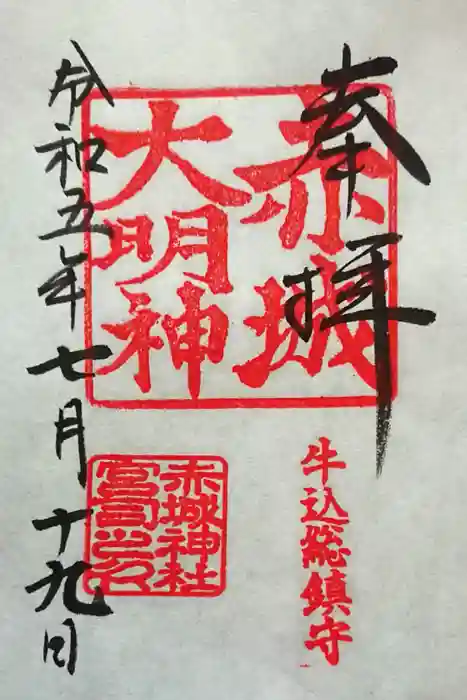 奉拝
牛込総鎮守
赤城
大明神
赤城神社
宮司之印
令和五年七月十九日